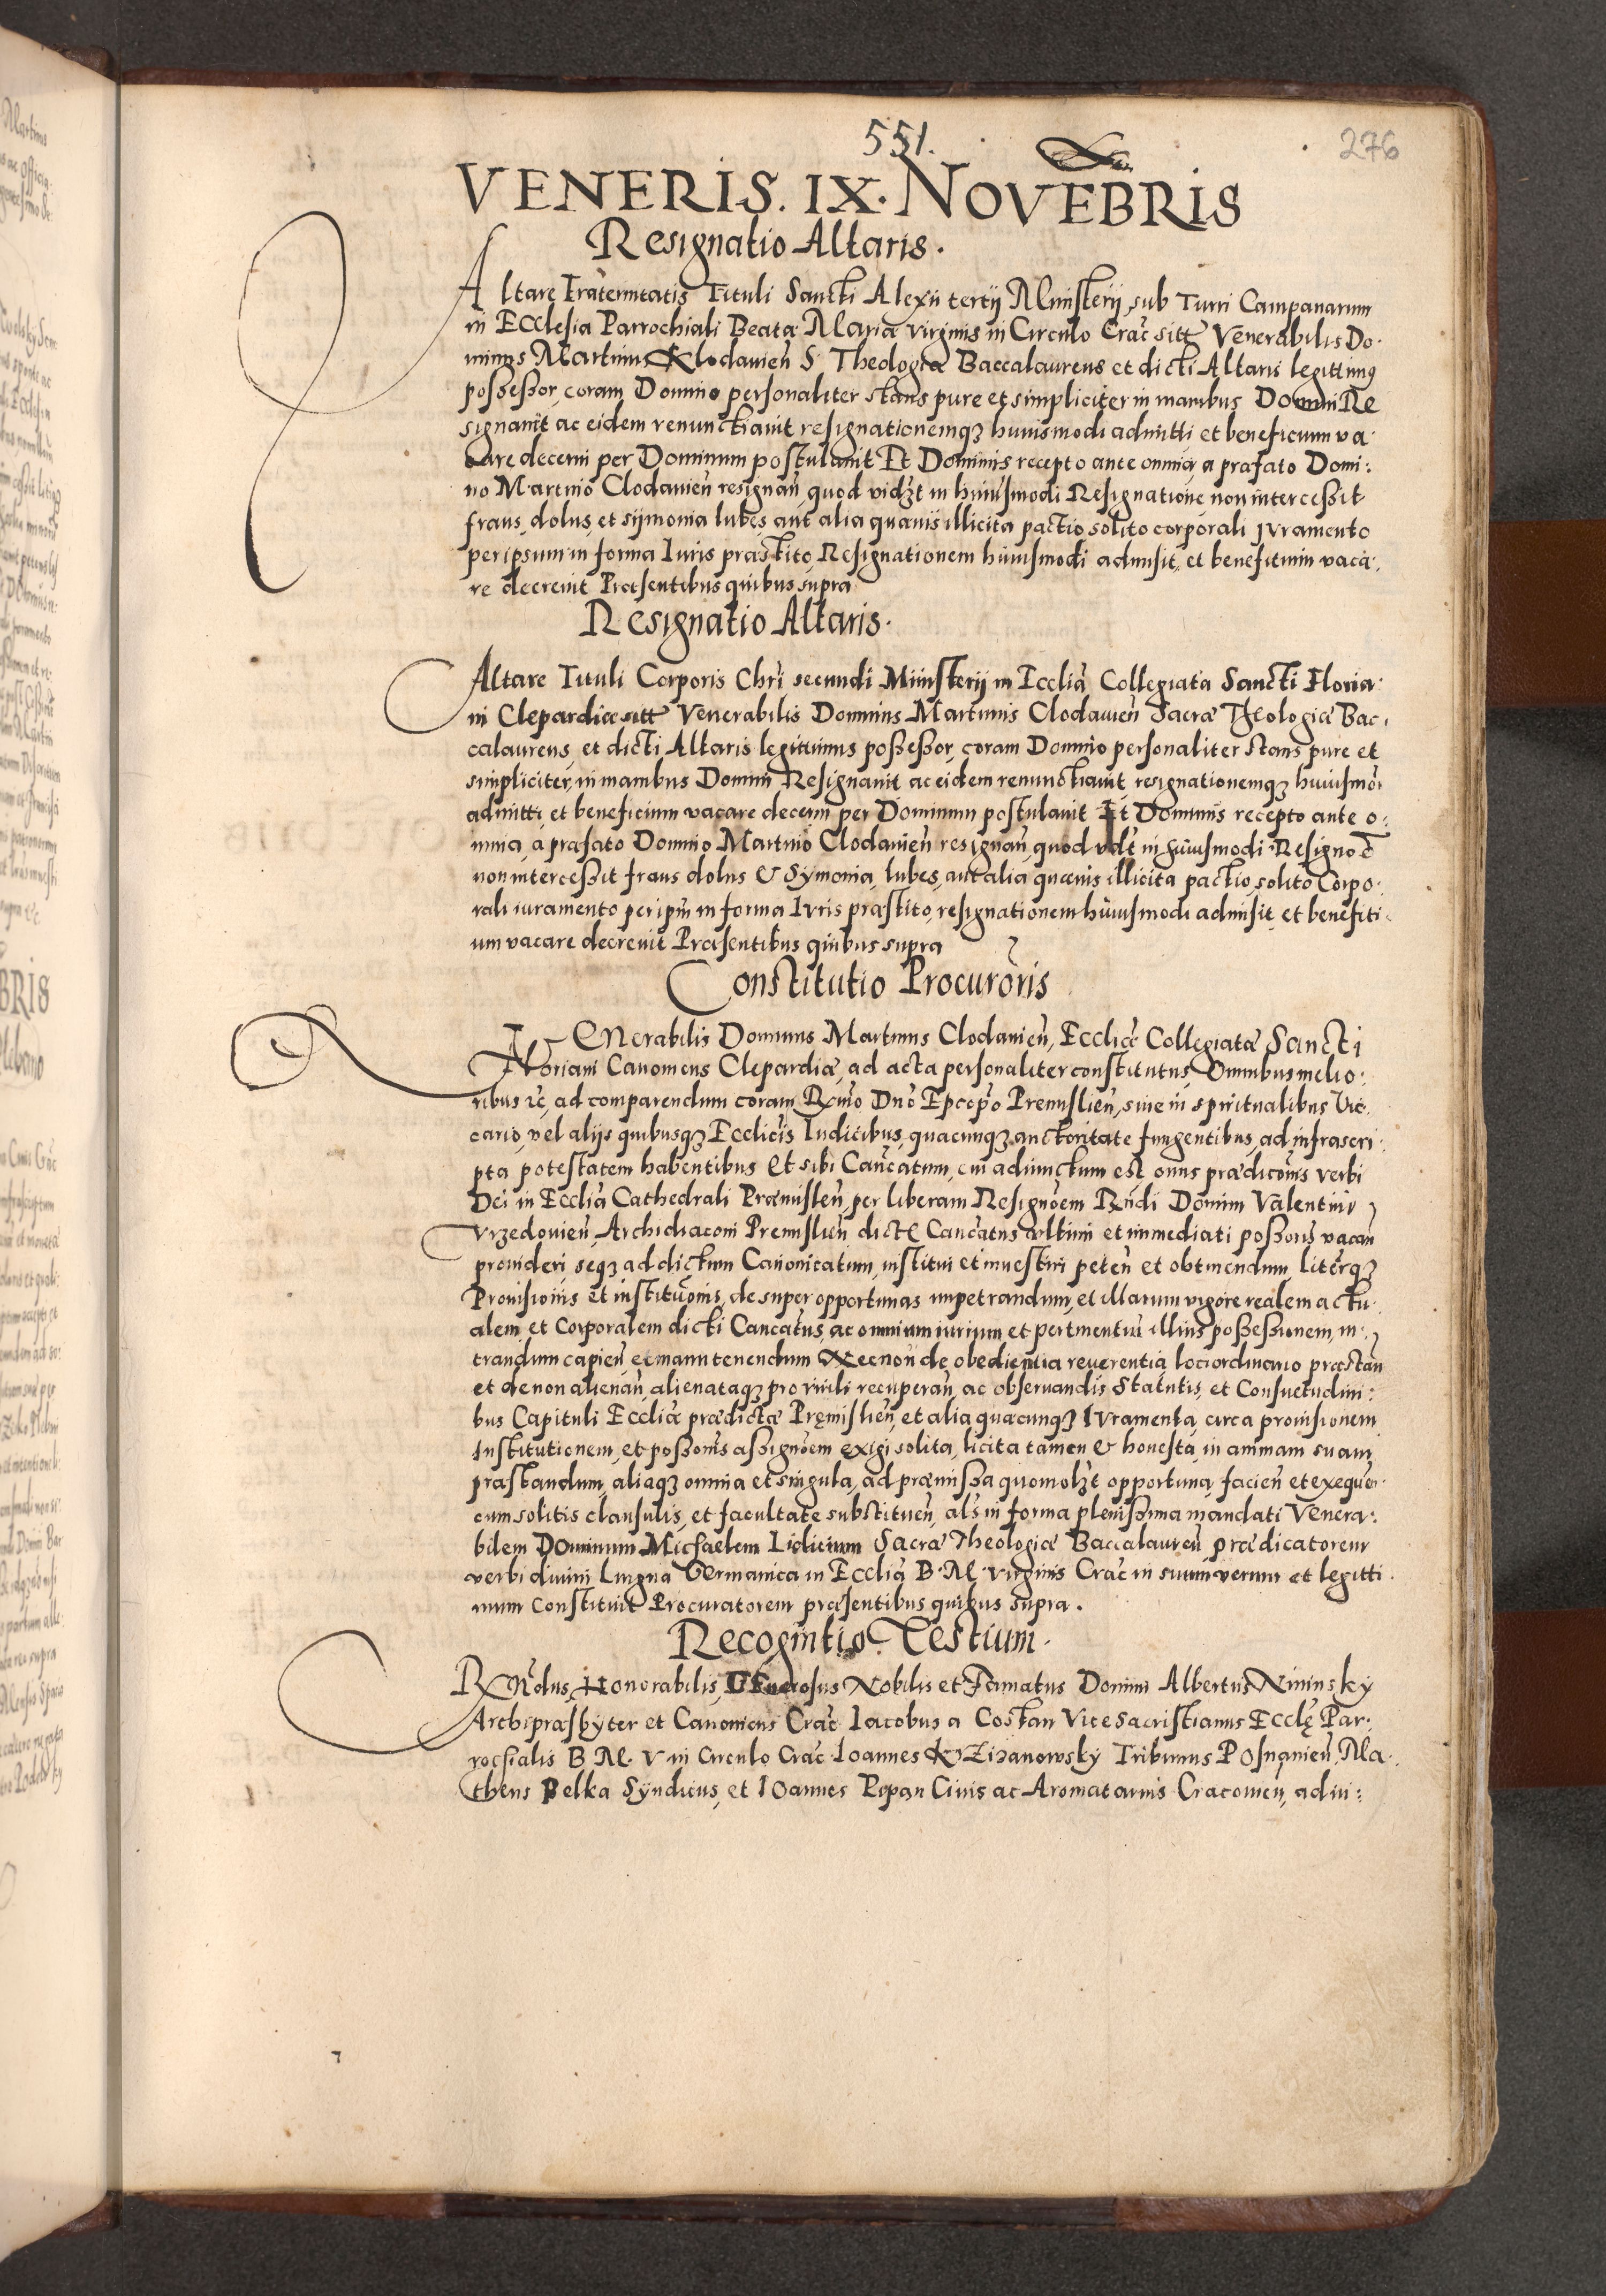 551.
276
VENERIS. IX. NOVEBRIS
Resignatio Altaris.
Altare Fraternitatis Tituli Sancti Alexii tertij Ministerij sub Turri Campanarum
in Ecclesia Parrochiali Beatæ Mariæ virginis in Circulo Crac̃ sitt̃ Venerabilis Do-
minus Martinus Klodavień S. Theologiæ Baccalaureus et dicti Altaris legittimus
possessor, coram Domino personaliter stans pure et simpliciter in manibus Domini Re
signavit ac eidem renunctiavit resignationemqꝫ huiusmodi admitti et beneficium va-
care decerni per Dominum postulavit Et Dominus recepto ante omnia, a præfato Domi:
no Martino Clodavień resignań, quod vidꝫt in huiusmodi Resignatione non intercessit
fraus, dolus, et sijmonia lubes aut alia quævis illicita pactio, solito corporali Juramento
per ipsum in forma Iuris præstito, Resignationem huiusmodi admisit, et benefitium vaca-
re decrevit Præsentibus quibus supra
Resignatio Altaris.
Altare Tituli Corporis Chri secundi Ministerij in Ecclia Collegiata Sancti Floria-
ni Clepardiæ sitt̃ Venerabilis Dominus Martinus Clodavień Sacræ Theologiæ Bac-
calaureus, et dicti Altaris legittimus possessor, coram Domino personaliter stans pure et
simpliciter, in manibus Domini Resignavit ac eidem renunctiavit, resignationemqꝫ huiusmoi
admitti, et beneficium vacare decerni per Dominum postulavit Et Dominus recepto ante o:
mnia, a præfato Domino Martino Clodavień resignań, quod vdt̃ in huiusmodi Resignoẽ
non intercessit fraus dolus & Symonia, lubes, aut alia quævis illicita pactio, solito Corpo-
rali iuramento per ipm̃ in forma Iuris præstito, resignationem huiusmodi admisit, et benefiti
um vacare decrevit Præsentibus quibus supra
Constitutio Procuroris
VEnerabilis Dominus Martinus Clodavień, Eccliæ Collegiatæ Sancti
Floriani Canonicus Clepardiæ, ad acta personaliter constitutus, Omnibus melio:
ribus ꝛc̃, ad comparendum coram Rx̃mo Dño Epcopo Premislień, sive in spiritualibus Vic
cario, vel alijs quibusqꝫ Ecclicis Iudicibus, quacunqꝫ auctoritate fungentibus, ad infrascri-
pta potestatem habentibus Et sibi Cańcatum, cui adiunctum est, onus prædiconis verbi
Dei in Ecclia Cathedrali Præmisleń, per liberam Resignoem Rx̃ndi Domini Valentini
Vrzedovień, Archidiaconi Premislień dicti Cancatus ultimi et immediati possoris vacań
provideri seqꝫ ad dictum Canonicatum, institui et investiri peteń et obtinendum, literqꝫ
Provisionis et institutionis, desuper opportunas impetrandum, et illarum vigore realem actu-
alem, et Corporalem dicti Cancatus, ac omnium iurium et pertinentiũ illius possessionem, in-
trandum capień, et manutenendum Necnon de obedientia reverentia loci ordinario præstań
et de non alienań, alienataqꝫ pro virili recuperań, ac observandis Statutis, et Consuetudini:
bus Capituli Eccliæ prædictæ Pręmislień, et alia quæcunqꝫ Iuramenta, circa provisionem
Institutionem, et possonis assignoem exigi solita, licita tamen & honesta, in animam suam
præstandum, aliaqꝫ omnia et singula, ad præmissa quomolꝫt opportuna, facień et exequeń-
cum solitis clausulis, et facultate substituen, als in forma plenissima mandati Venera:
bilem Dominum Michaelem Lidicium Sacræ Theologiæ Baccalaureũ, prædicatorem
verbi divini Lingua Germanica in Ecclia B. M. virginis Crac̃ in suum verum et legitti-
mum Constituit Procuratorem præsentibus quibus supra.
Recognitio Testium.
Rx̃ndus, Honorabilis, GEnerosus Nobilis et Famatus Domini Albertus Nininsky
Archipræsbyter et Canonicus Crac̃ Iacobus a Costan Vicesacristianus Ecclę Par-
rochialis B M. V in Circulo Crac̃ Ioannes Krzizanowsky Tribunus Posnanień, Ma-
theus Pelka Syndicus, et IOannes Pipan Civis ac Aromatarius Cracovień, ad in: